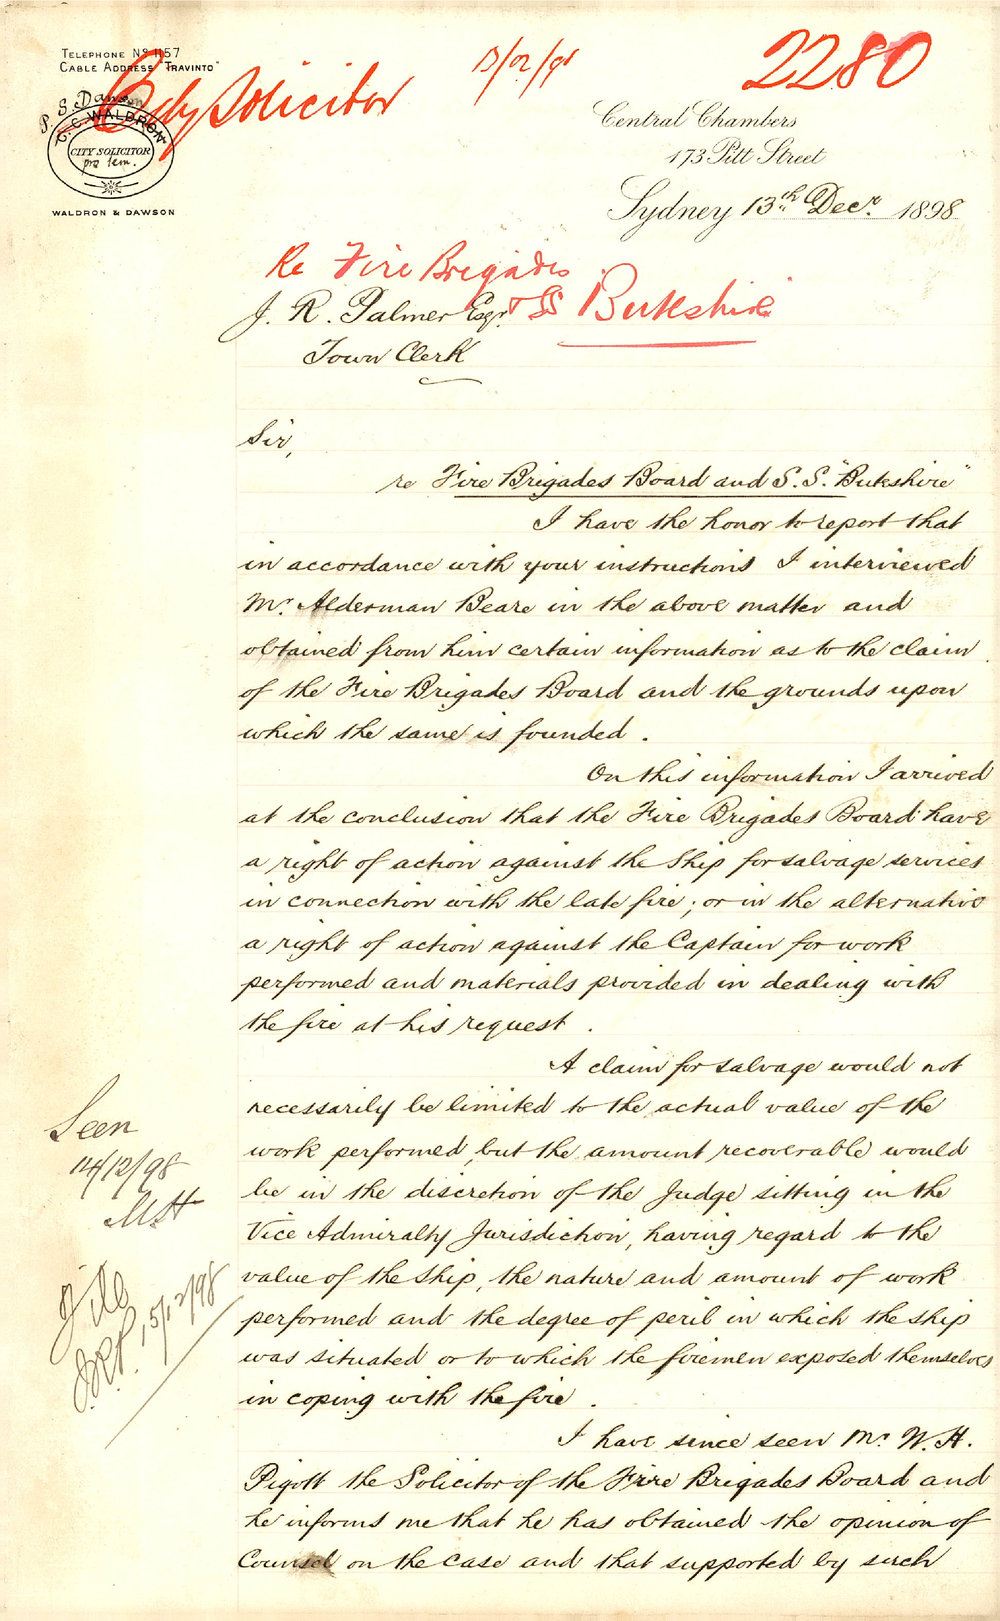 Telephone No 1157
Cable Address "Travinto"
City Solicitor
13/12/98
2280
P. S. Dawson
C. C. WALDRON
CITY SOLICITOR
pro tem.
WALDRON & DAWSON
Central Chambers
173 Pitt Street
Sydney 13th Decr. 1898
Re Fire Brigades
& SS Berkshire
J. R. Palmer Esqr.
Town Clerk
Sir,
re Fire Brigades Board and S.S. "Berkshire"
I have the honor to report that
in accordance with your instructions I interviewed
Mr. Alderman Beare in the above matter and
obtained from him certain information as to the claim
of the Fire Brigades Board and the grounds upon
which the same is founded.
On this information I arrived
at the conclusion that the Fire Brigades Board have
a right of action against the Ship for salvage services
in connection with the late fire; or in the alternative
a right of action against the Captain for work
performed and materials provided in dealing with
the fire at his request.
A claim for salvage would not
necessarily be limited to the actual value of the
work performed, but the amount recoverable would
be in the discretion of the Judge sitting in the
Vice Admiralty Jurisdiction, having regard to the
value of the ship, the nature and amount of work
performed and the degree of peril in which the ship
was situated or to which the firemen exposed themselves
in coping with the fire.
I have since seen Mr. W. H.
Pigott the Solicitor of the Fire Brigades Board and
he informs me that he has obtained the opinion of
Counsel on the case and that supported by such
Seen
14/12/98
File
J.R.P. 15/12/98